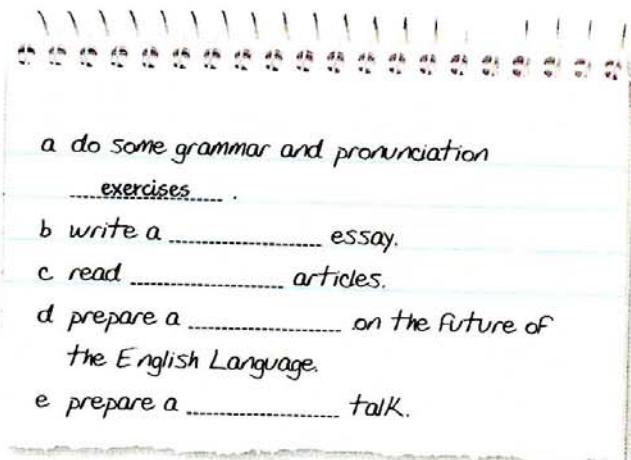 a do some grammar and pronunciation
exercises .
b write a ............... essay.
c read ............... articles.
d prepare a ............... on the future of
the English Language.
e prepare a ............... talk.